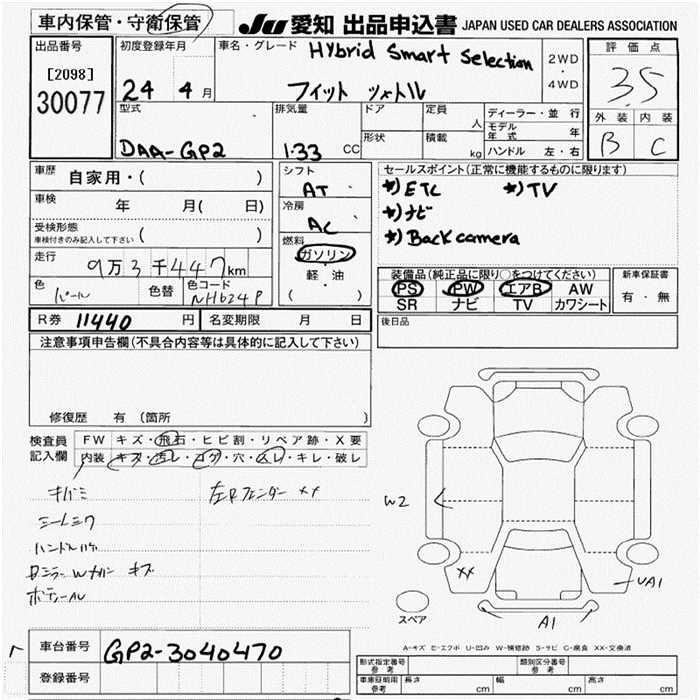 車内保管・守衛保管
JU 愛知 出品申込書 JAPAN USED CAR DEALERS ASSOCIATION
出品番号
[2098]
30077
初度登録年月
24 4月
車名・グレード
Hybrid Smart Selection
フィット シャトル
2WD
・
4WD
評価点
3.5
外装 内装
B C
型式
DAA-GP2
排気量
1.33 CC
ドア
形状
定員
人
積載
kg
ディーラー・並行
モデル年式 年
ハンドル 左・右
車歴
自家用・( )
車検
年 月( 日)
受検形態
車検付きのみ記入して下さい ( )
走行
9万3千447km
色
パール
色替
色コード
NH624P
シフト
AT
冷房
AC
燃料
ガソリン
・
軽・油
( )
セールスポイント(正常に機能するものに限ります)
*)ETC *)TV
*)ナビ
*)Back camera
装備品(純正品に限り○をつけてください)
PS PW エアB AW
SR ナビ TV カワシート
新車保証書
有・無
R券 11440 円
名変期限 月 日
後日品
注意事項申告欄(不具合内容等は具体的に記入して下さい)
修復歴 有(箇所 )
検査員
記入欄
FW キズ・飛石・ヒビ割・リペア跡・X要
内装 キズ・汚レ・コゲ・穴・スレ・キレ・破レ
キバミ
左Rフェンダー XX
シートシワ
キズ
W2
XX
UA1
A1
スペア
A-キズ E-エクボ U-凹み W-補修跡 S-サビ C-腐食 XX-交換済
車台番号
GP2-3040470
登録番号
形式指定番号
参考
類別区分番号
参考
車庫証明用
参考
長さ cm
幅 cm
高さ cm